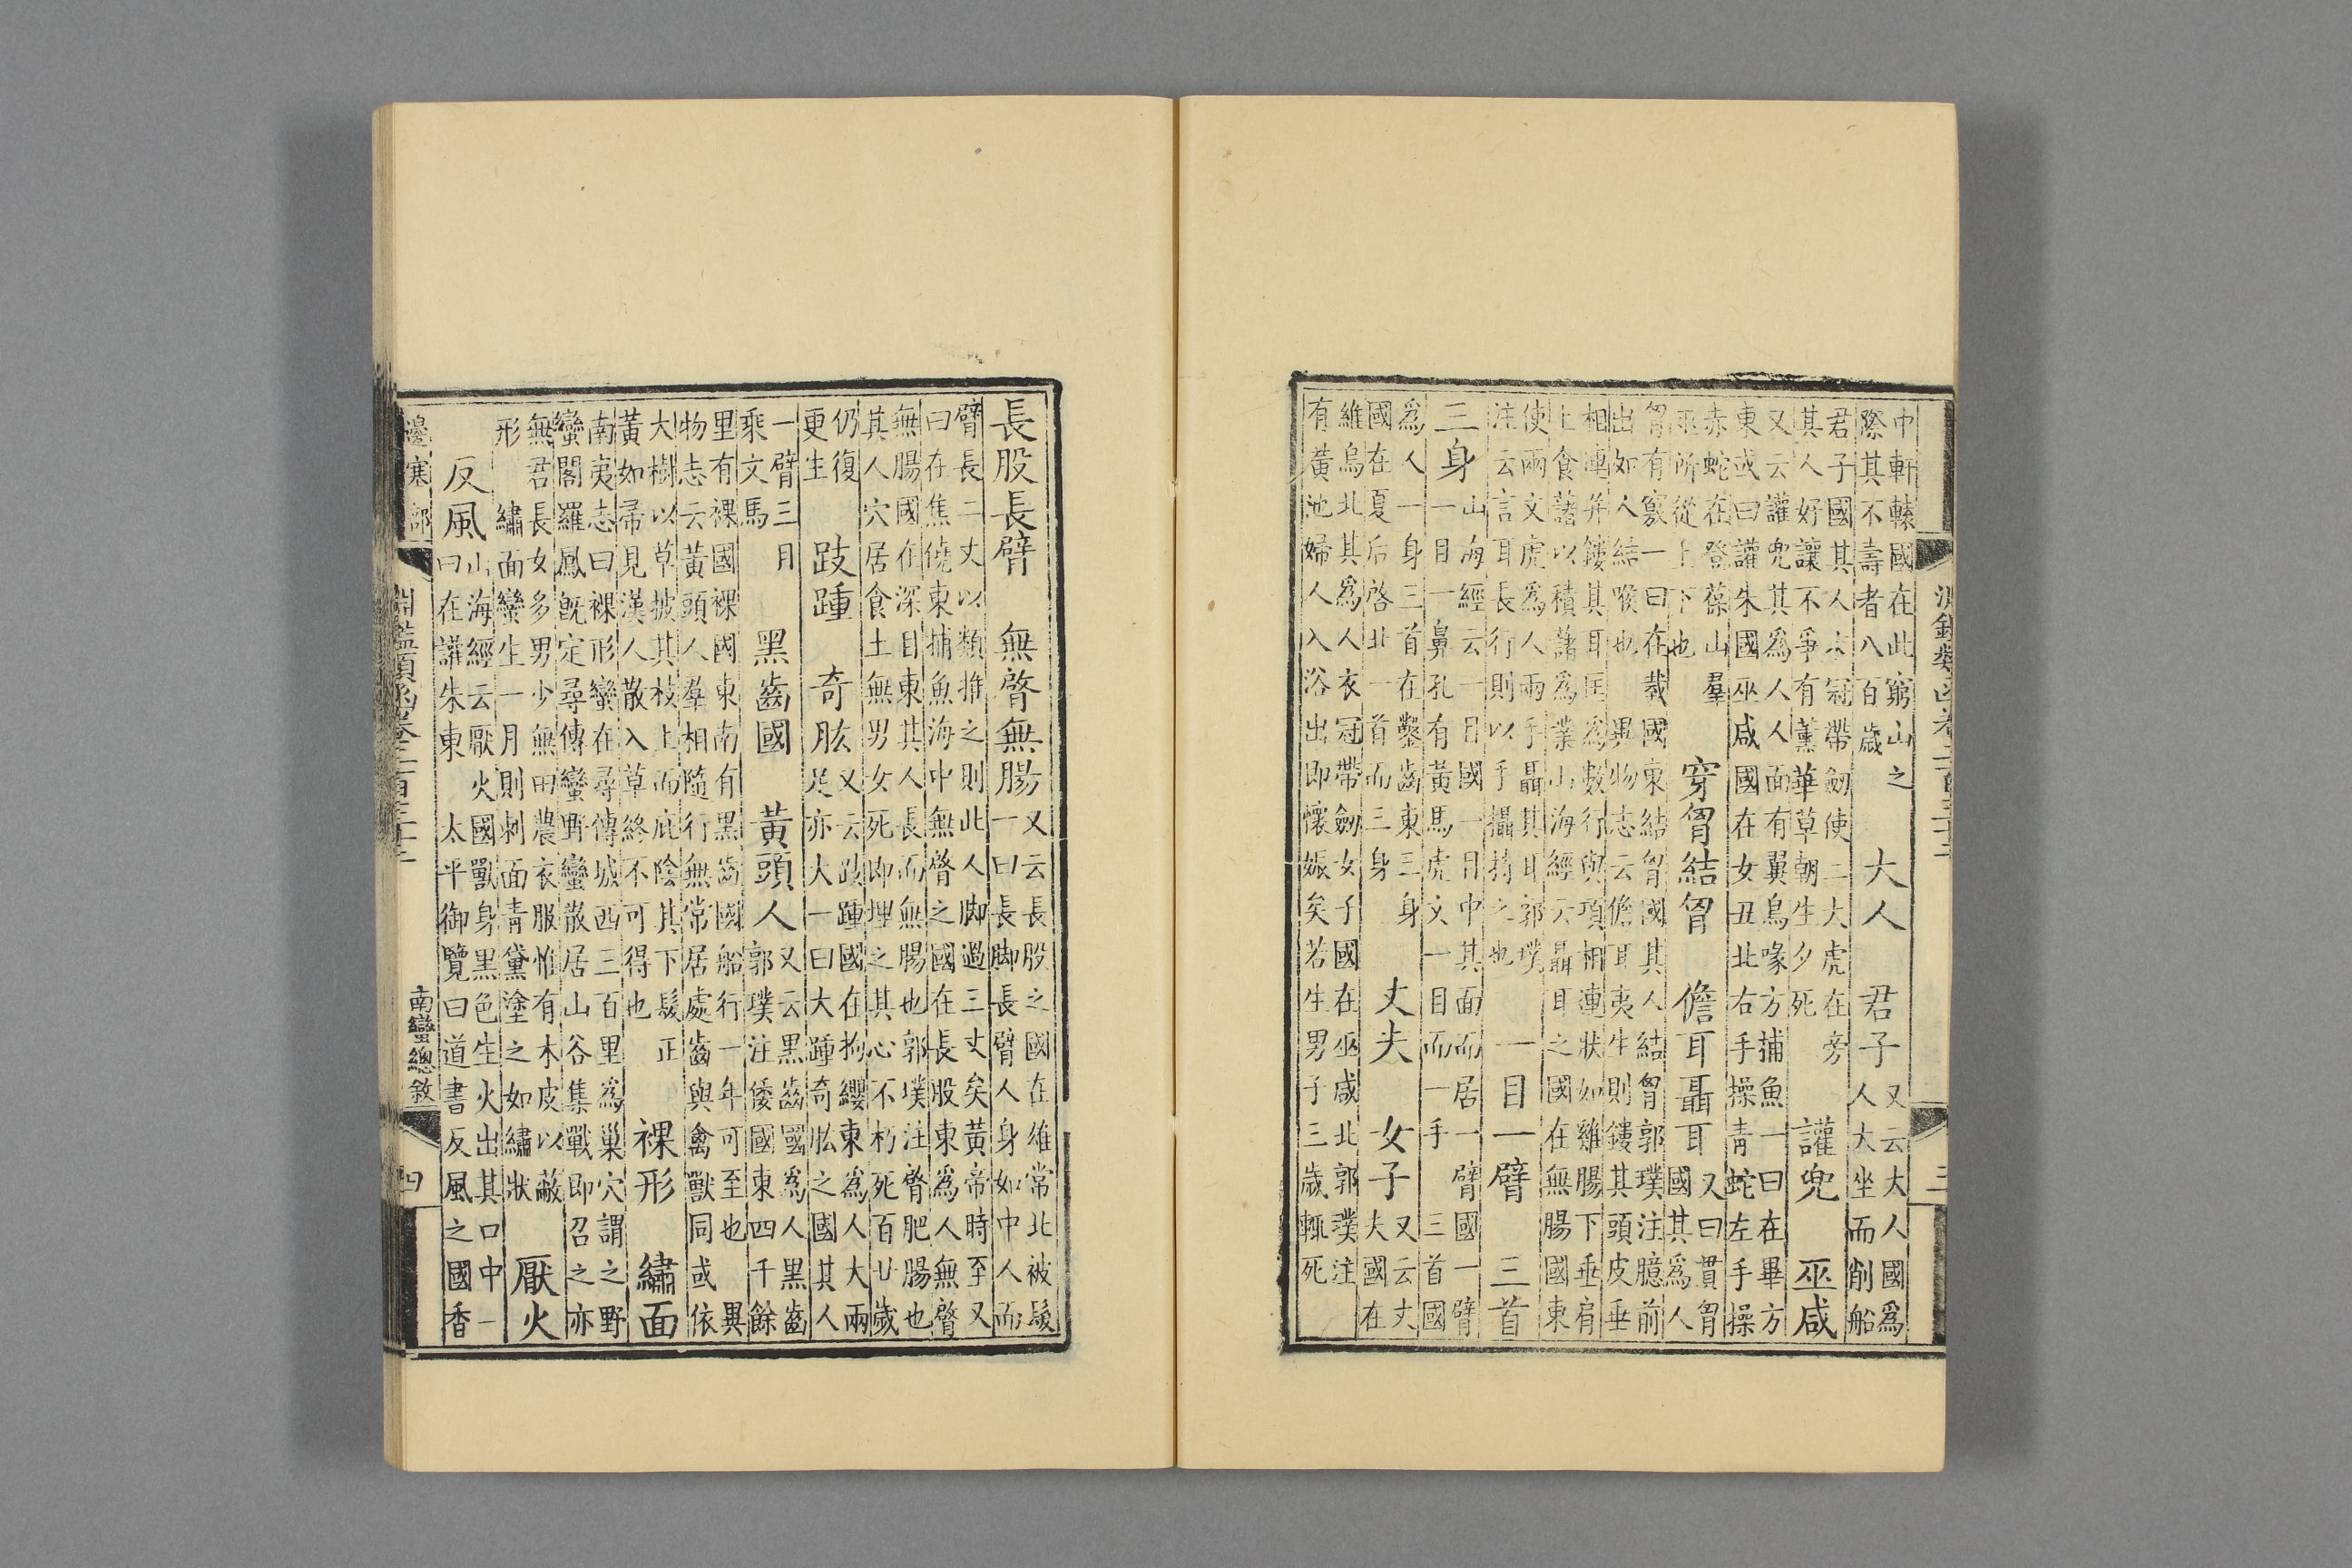 中軒轅國在此窮山之
際其不壽者八百歲
大人　君子
又云大人國為
人大坐而削船
君子國其人衣冠帶劒使二大虎在旁
其人好讓不爭有薰華草朝生夕死
讙兜　巫咸
又云讙兜其為人人面有翼鳥喙方捕魚一曰在畢方
東或曰讙朱國巫咸國在女丑北右手操青蛇左手操
赤蛇在登葆山羣
巫所從上下也
穿胷結胷　儋耳聶耳
又曰貫胷
國其為人
胷有竅一曰在臷國東結胷國其人結胷郭璞注臆前
出如人結喉也異物志云儋耳夷生則鏤其頭皮垂
相連并鏤其耳匡為數行與項相連狀如雞腸下垂肩
上食藷以積藷為業山海經云聶耳之國在無腸國東
使兩文虎為人兩手聶其耳郭璞
注云言耳長行則以手攝持之也
一目一臂　三首
三身
山海經云一目國一目中其面而居一臂國一臂
一目一鼻孔有黃馬虎文一目而一手三首國
為人一身三首在鑿齒東三身
國在夏后啓北一首而三身
丈夫　女子
又云丈
夫國在
維鳥北其為人衣冠帶劒女子國在巫咸北郭璞注
有黃池婦人入浴出即懷娠矣若生男子三歲輒死
長股長臂　無䏿無腸
又云長股之國在雄常北被髮
一曰長脚長臂人身如中人而
臂長二丈以類推之則此人脚過三丈矣黃帝時至又
曰在焦僥東捕魚海中無䏿之國在長股東為人無䏿
無腸國在深目東其人長而無腸也郭璞注䏿肥腸也
其人穴居食土無男女死即埋之其心不朽死百廿歲
仍復
更生
跂踵　奇肱
又云跂踵國在拘纓東為人大兩
足亦大一曰大踵奇肱之國其人
一臂三目
乘文馬
黑齒國　黃頭人
又云黑齒國為人黑齒
郭璞注倭國東四千餘
里有裸國裸國東南有黑齒國船行一年可至也異
物志云黃頭人羣相隨行無常居處齒與禽獸同或依
大樹以草披其枝上而庇陰其下髮正
黃如帚見漢人散入草終不可得也
裸形　繡面
南夷志曰裸形蠻在尋傳城西三百里為巢穴謂之野
蠻閣羅鳳旣定尋傳蠻野蠻散居山谷集戰即召之亦
無君長女多男少無田農衣服惟有木皮以蔽
形　繡面蠻生一月則刺面青黛塗之如繡狀
厭火
反風
山海經云厭火國獸身黑色生火出其口中一
曰在讙朱東　太平御覽曰道書反風之國香
邊塞部
淵鑑類函卷
南蠻總敘
四